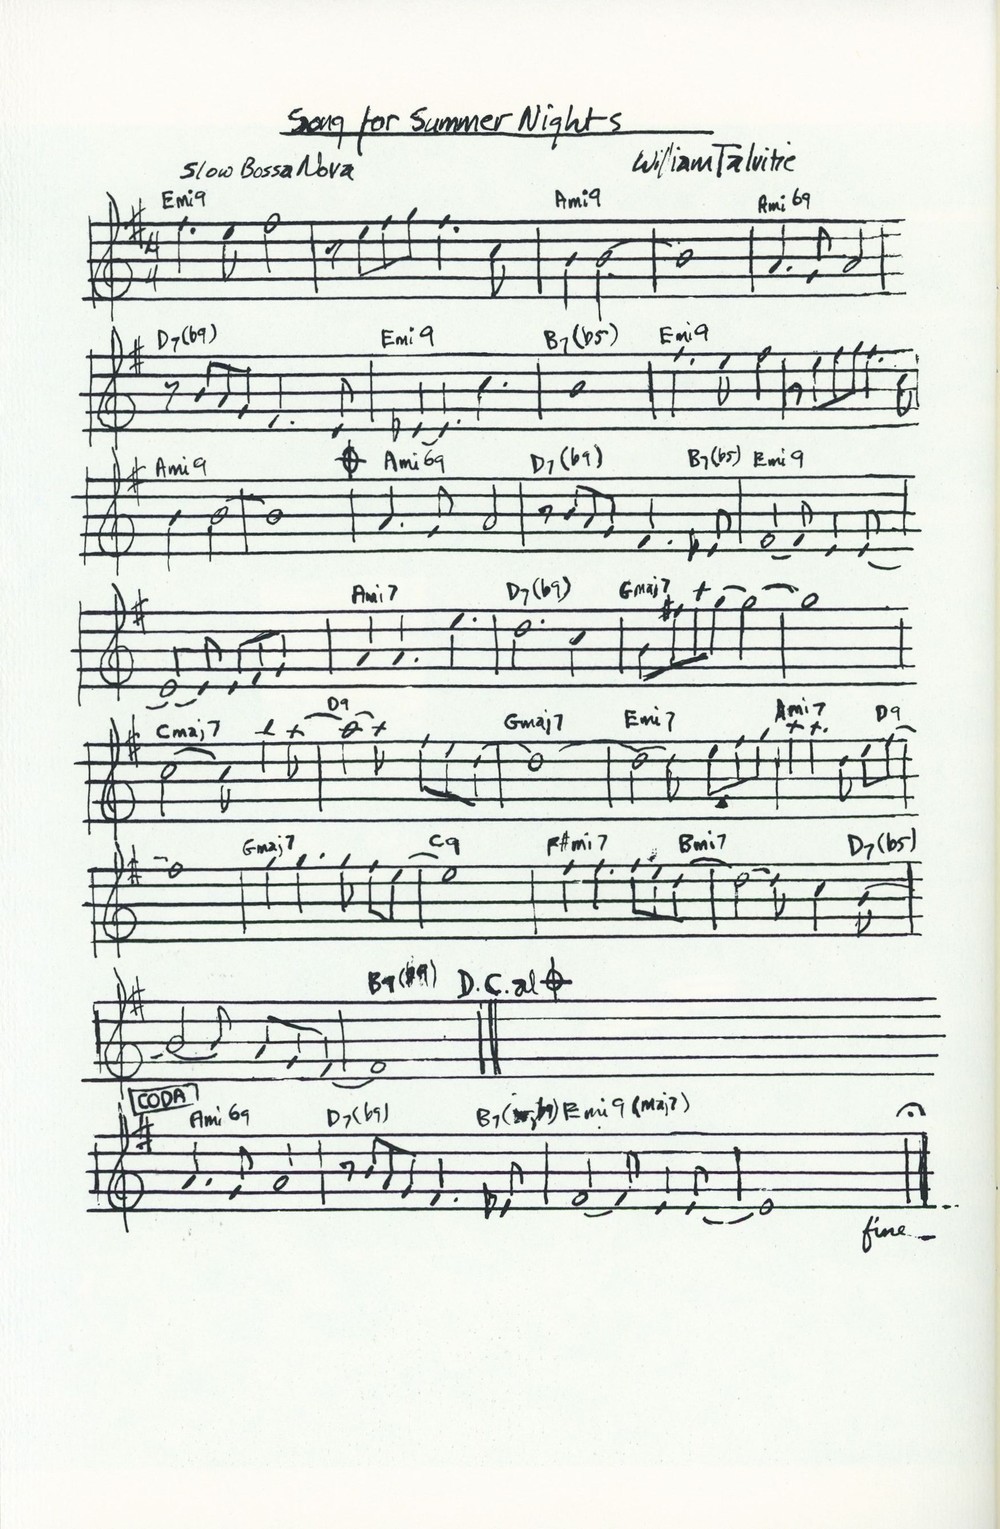 Song for Summer Nights
Slow Bossa Nova William Talvitie
Emi9 Ami9 Ami 69
4
4
D7(b9) Emi9 B7(b5) Emi9
Ami9 Ami 69 D7(b9) B7(b5) Emi9
Ami7 D7(b9) Gmaj7
Cmaj7 D9 Gmaj7 Emi7 Ami7 D9
Gmaj7 C9 F#mi7 Bmi7 D7(b5)
D.C. al
CODA
Ami 69 D7(b9) Emi9 (maj7)
fine